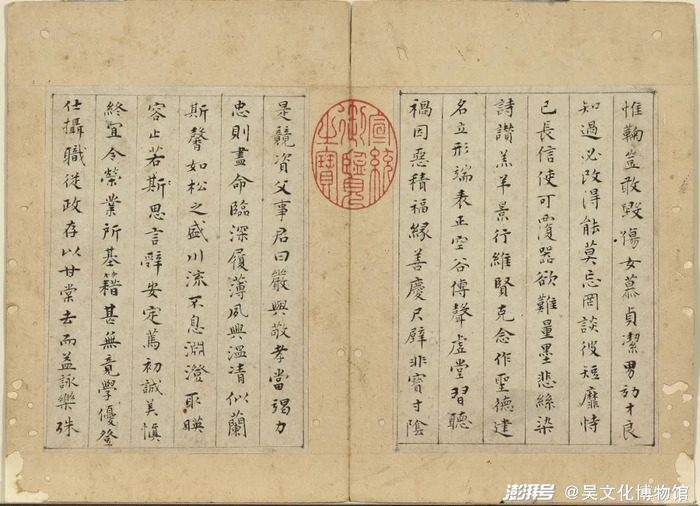 惟鞠豈敢毀傷女慕貞潔男効才良
知過必改得能莫忘罔談彼短靡恃
已長信使可覆器欲難量墨悲絲染
詩讚羔羊景行維賢克念作聖德建
名立形端表正空谷傳聲虛堂習聽
禍因惡積福緣善慶尺璧非寶寸陰
宣統
御覽
之寶
是競資父事君曰嚴與敬孝當竭力
忠則盡命臨深履薄夙興溫凊似蘭
斯馨如松之盛川流不息淵澄取暎
容止若斯思言辭安定篤初誠美慎
終宜令榮業所基籍甚無竟學優登
仕攝職從政存以甘棠去而益詠樂殊
澎湃号 @吴文化博物馆